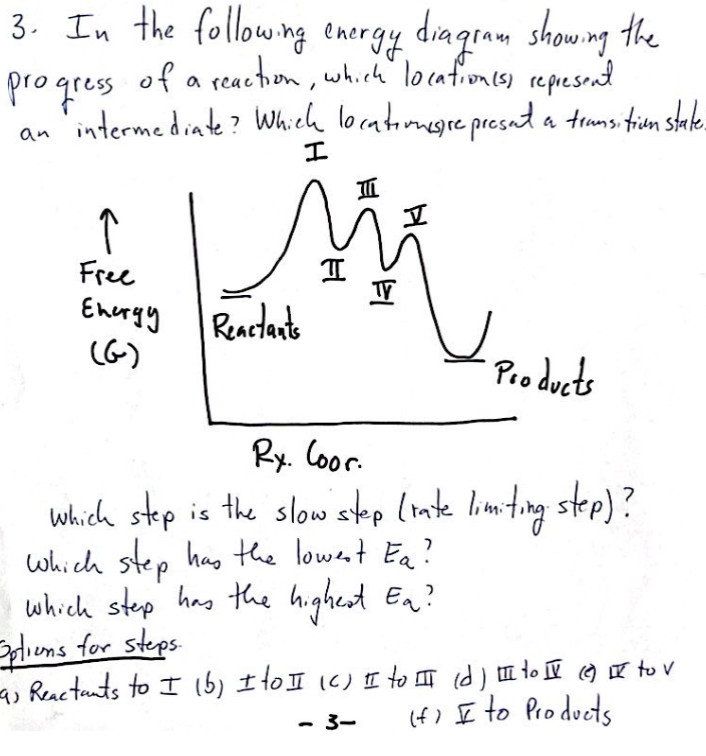 3. In the following energy diagram showing the
progress of a reaction, which location(s) represent
an intermediate? Which location(s) represent a transition state.
I
III
V
↑
Free
Energy
(G)
II
IV
Reactants
Products
Rx. Coor.
Which step is the slow step (rate limiting step)?
Which step has the lowest Ea?
Which step has the highest Ea?
Options for steps.
a) Reactants to I (b) I to II (c) II to III (d) III to IV (e) IV to V
- 3 - (f) V to Products